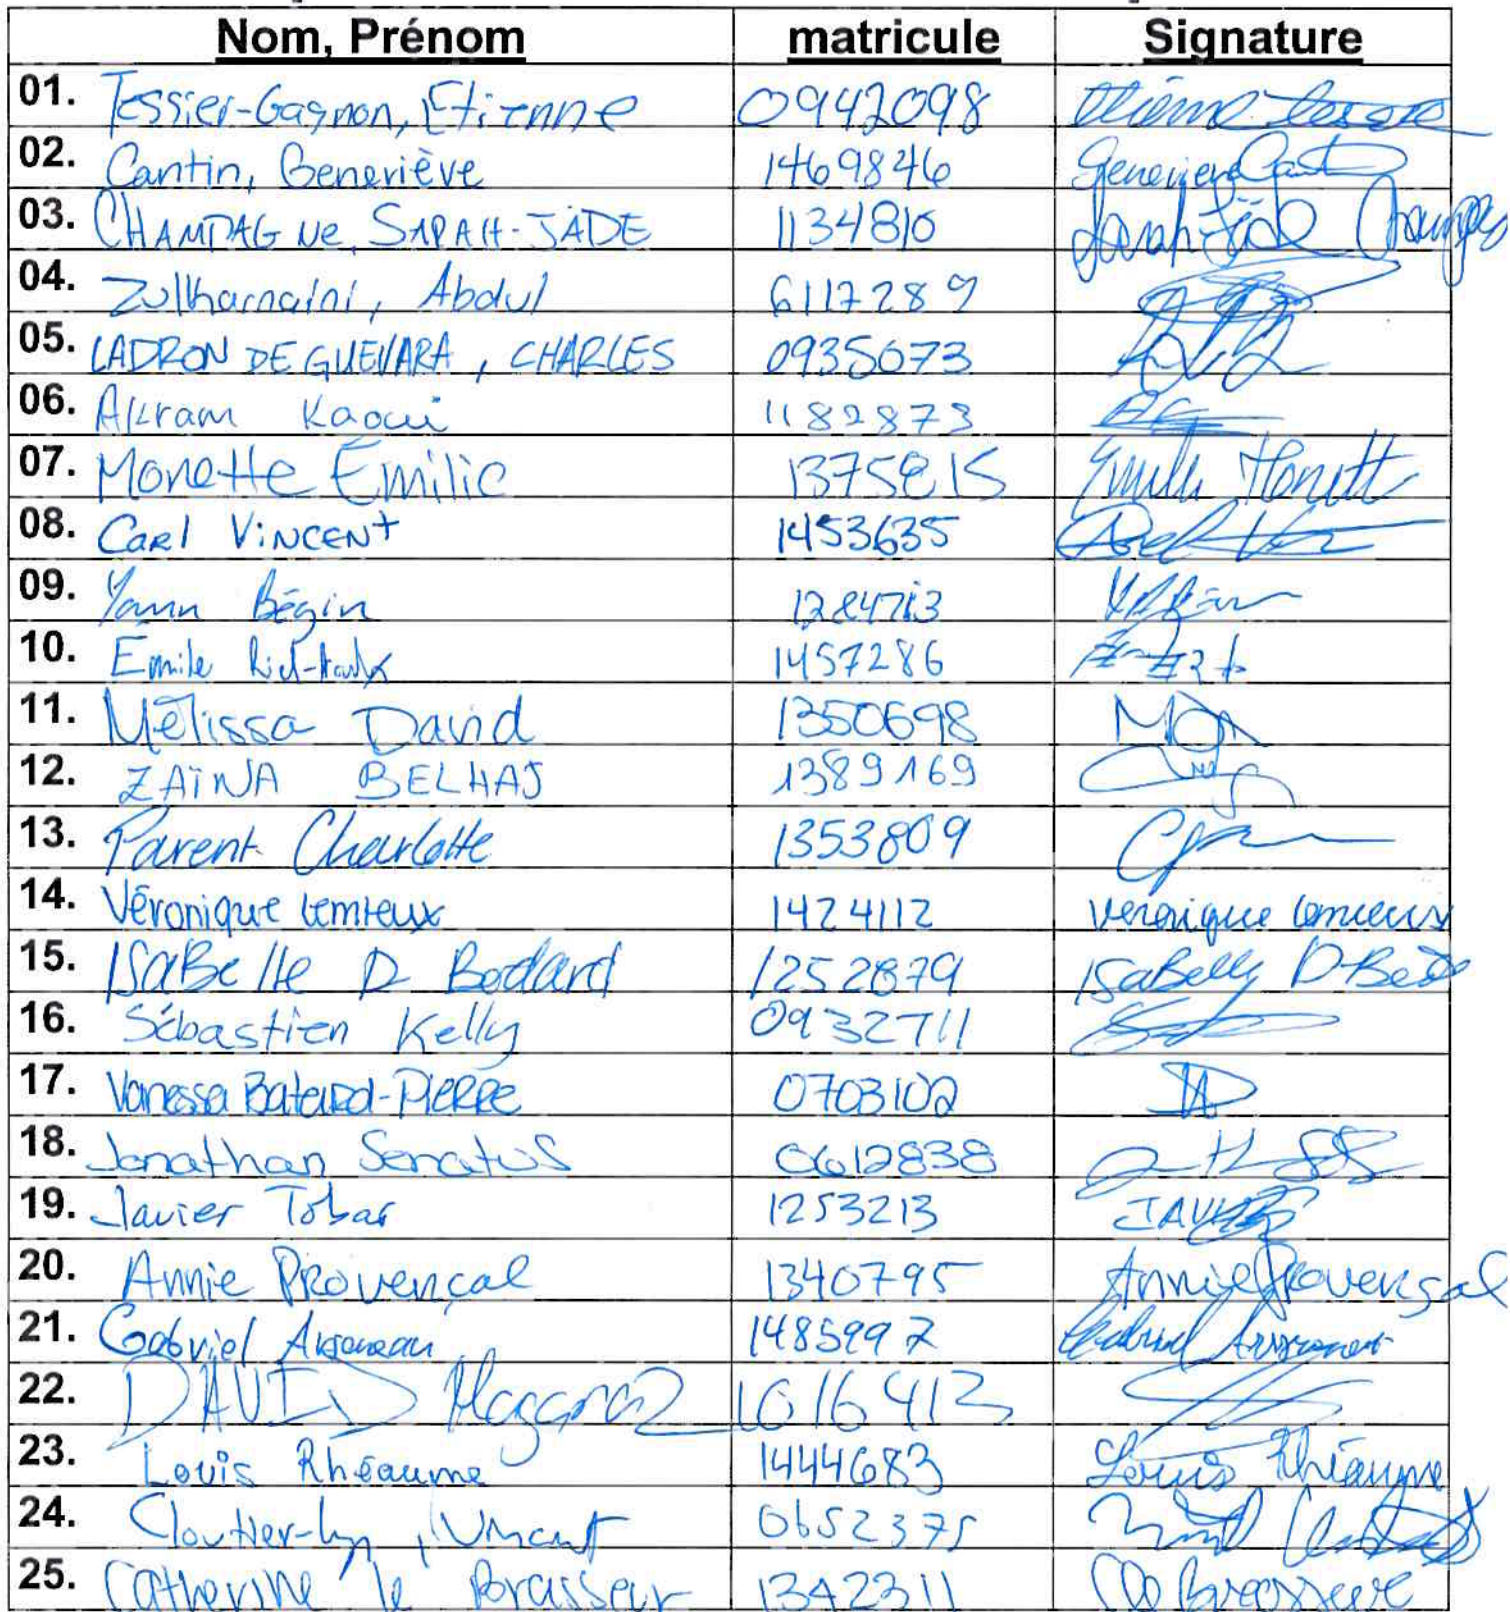 Nom, Prénom matricule Signature
01. Tessier-Gagnon, Etienne 0942098
02. Cantin, Geneviève 1469846 Geneviève Cantin
03. CHAMPAGNE, SARAH-JADE 1134810 Sarah-Jade Champagne
04. Zulkarnaini, Abdul 6117289
05. LADRON DE GUEVARA, CHARLES 0935073
06. Akram Kaoui 1182873
07. Monette Émilie 1375815 Emilie Monette
08. Carl Vincent 1453635
09. Yann Bégin 1284713
10. Emile 1457286
11. Mélissa David 1350698
12. ZAÏNA BELHAJ 1389169
13. Parent Charlotte 1353809
14. Véronique Lemieux 1424112 Veronique Lemieux
15. ISaBelle D Bedard 1252879 ISaBelle D-Bed
16. Sébastien Kelly 0932711
17. Vanessa Batard-Pierre 0703102
18. Jonathan Senatus 0612838
19. Javier Tobar 1253213
20. Annie Provençal 1340795 Annie Provençal
21. Gabriel Arseneau 1485997 Gabriel Arseneau
22. DAVID 1016413
23. Louis Rhéaume 1444683 Louis Rhéaume
24. Cloutier-Ly, Vincent 0652375
25. Catherine le Brasseur 1342311